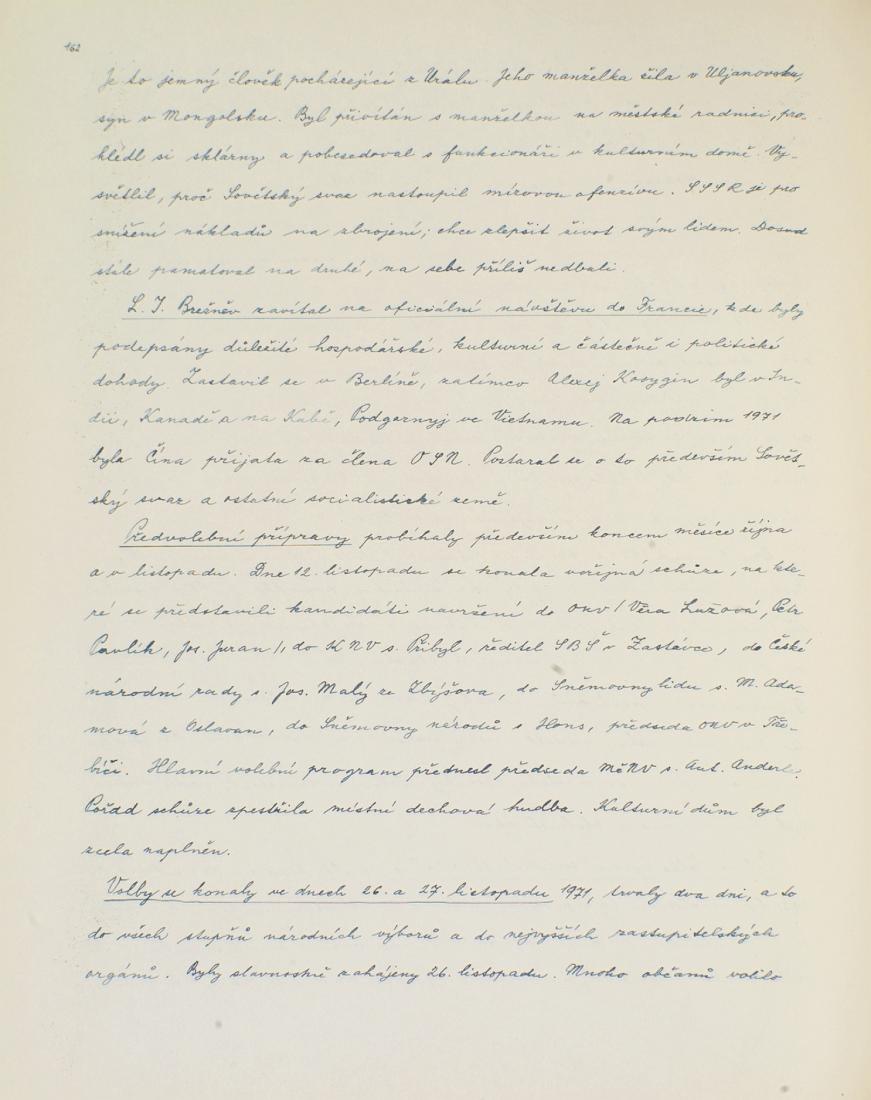 162
Je to jemný člověk pocházející z Urálu. Jeho manželka žila v Uljanovsku,
syn v Mongolsku. Byl přivítán s manželkou na městské radnici, pro-
hlédl si sklárny a pobesedoval s funkcionáři v kulturním domě. Vy-
světlil, proč Sovětský svaz nastoupil mírovou ofenzívu. SSSR je pro
snížení nákladů na zbrojení; chce zlepšit život svým lidem. Dosud
stále pamatoval na druhé, na sebe příliš nedbali.
L. I. Brežněv zavítal na oficiální návštěvu do Francie, kde byly
podepsány důležité hospodářské, kulturní a částečně i politické
dohody. Zastavil se v Berlíně, zatímco Alexej Kosygin byl v In-
dii, Kanadě a na Kubě, Podgornyj ve Vietnamu. Na podzim 1971
byla Čína přijata za člena OSN. Postaral se o to především Sovět-
ský svaz a ostatní socialistické země.
Předvolební přípravy probíhaly především koncem měsíce října
a v listopadu. Dne 12. listopadu se konala veřejná schůze, na kte-
ré se představili kandidáti navržení do ONV / Věra Lužová, Petr
Pavlík, Jos. Juran /, do KNV s. Přibyl, ředitel SBŠ v Zastávce, do České
národní rady s. Jos. Malý ze Zbýšova, do Sněmovny lidu s. M. Ada-
mová z Oslavan, do Sněmovny národů s. Hons, předseda ONV v Tře-
bíči. Hlavní volební program přednesl předseda MěNV s. Ant. Anderle.
Pořad schůze zpestřila místní dechová hudba. Kulturní dům byl
zcela naplněn.
Volby se konaly ve dnech 26. a 27. listopadu 1971, trvaly dva dni, a to
do všech stupňů národních výborů a do nejvyšších zastupitelských
orgánů. Byly slavnostně zahájeny 26. listopadu. Mnoho občanů volilo